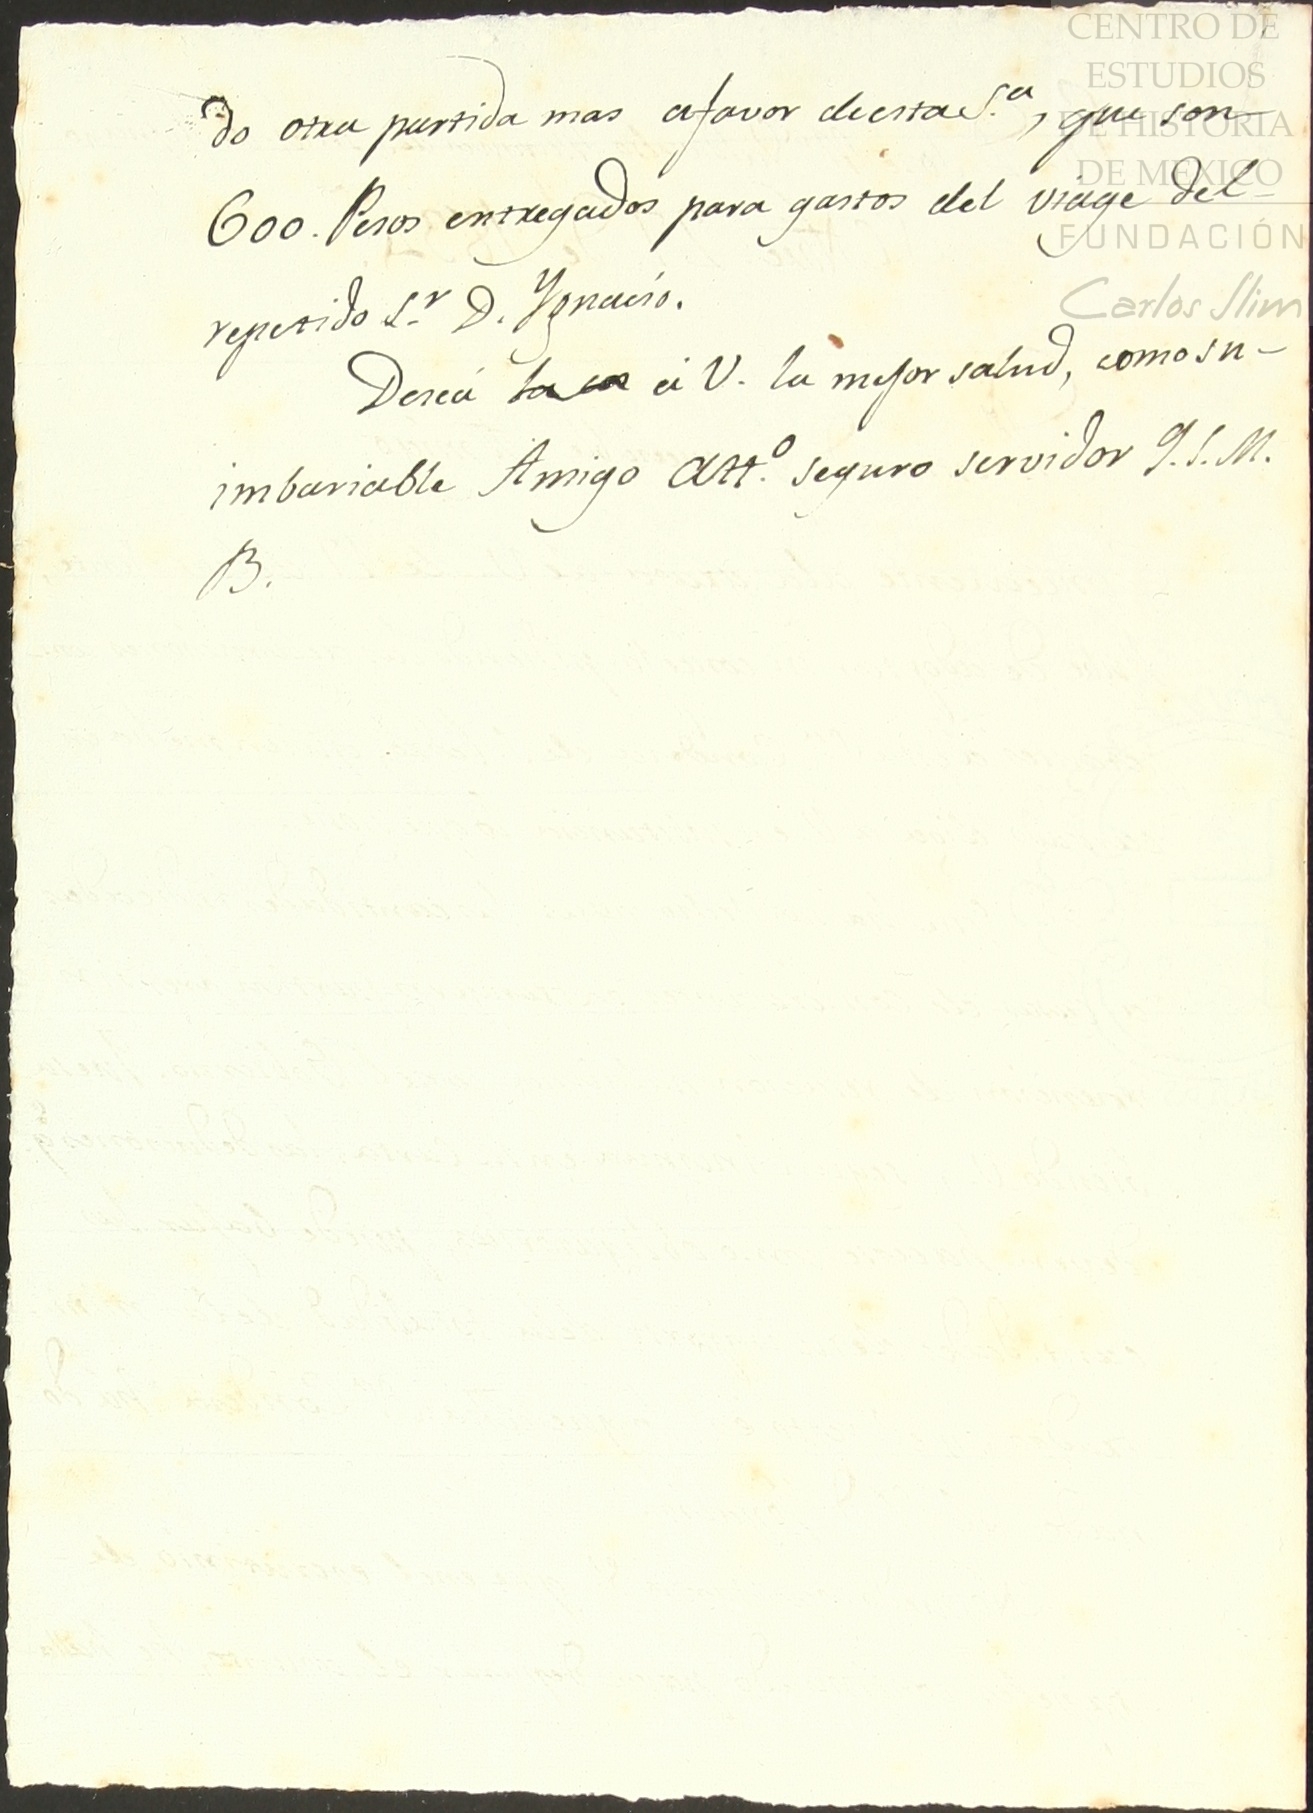 CENTRO DE
ESTUDIOS
DE HISTORIA
DE MEXICO
FUNDACIÓN
Carlos Slim
do otra partida mas afavor deesta S.ª, que son-
600. Pesos entregados para gastos del viage del-
repetido S.r D. Ygnacio.
Deseá á V. la mejor salud, como su-
imbariable Amigo Att.º seguro servidor Q.S.M.
B.